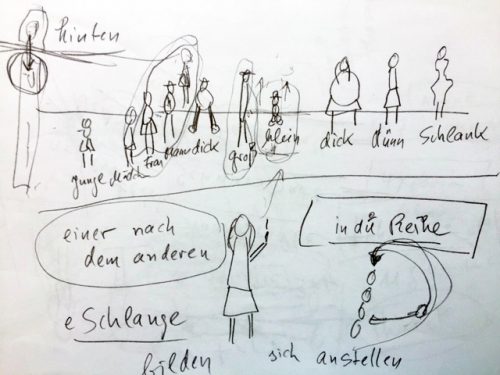 hinten
Junge Mädch Frau Mann dick groß klein dick dünn Schlank
einer nach
dem anderen
in die Reihe
e Schlange
bilden
sich anstellen